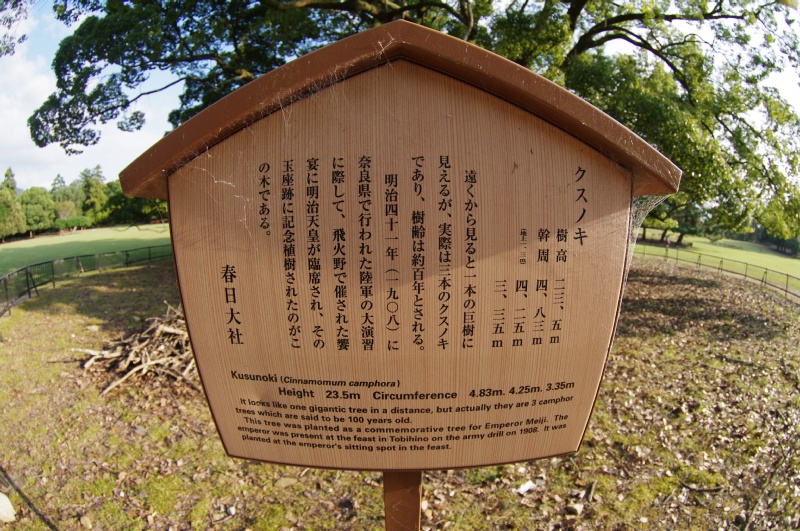 クスノキ
樹高 二三、五m
幹周 四、八三m
四、二五m
三、三五m
遠くから見ると一本の巨樹に
見えるが、実際は三本のクスノキ
であり、樹齢は約百年とされる。
明治四十一年(一九〇八)に
奈良県で行われた陸軍の大演習
に際して、飛火野で催された饗
宴に明治天皇が臨席され、その
玉座跡に記念植樹されたのがこ
の木である。
春日大社
Kusunoki (Cinnamomum camphora)
Height 23.5m Circumference 4.83m. 4.25m. 3.35m
It looks like one gigantic tree in a distance, but actually they are 3 camphor
trees which are said to be 100 years old.
This tree was planted as a commemorative tree for Emperor Meiji. The
emperor was present at the feast in Tobihino on the army drill on 1908. It was
planted at the emperor's sitting spot in the feast.